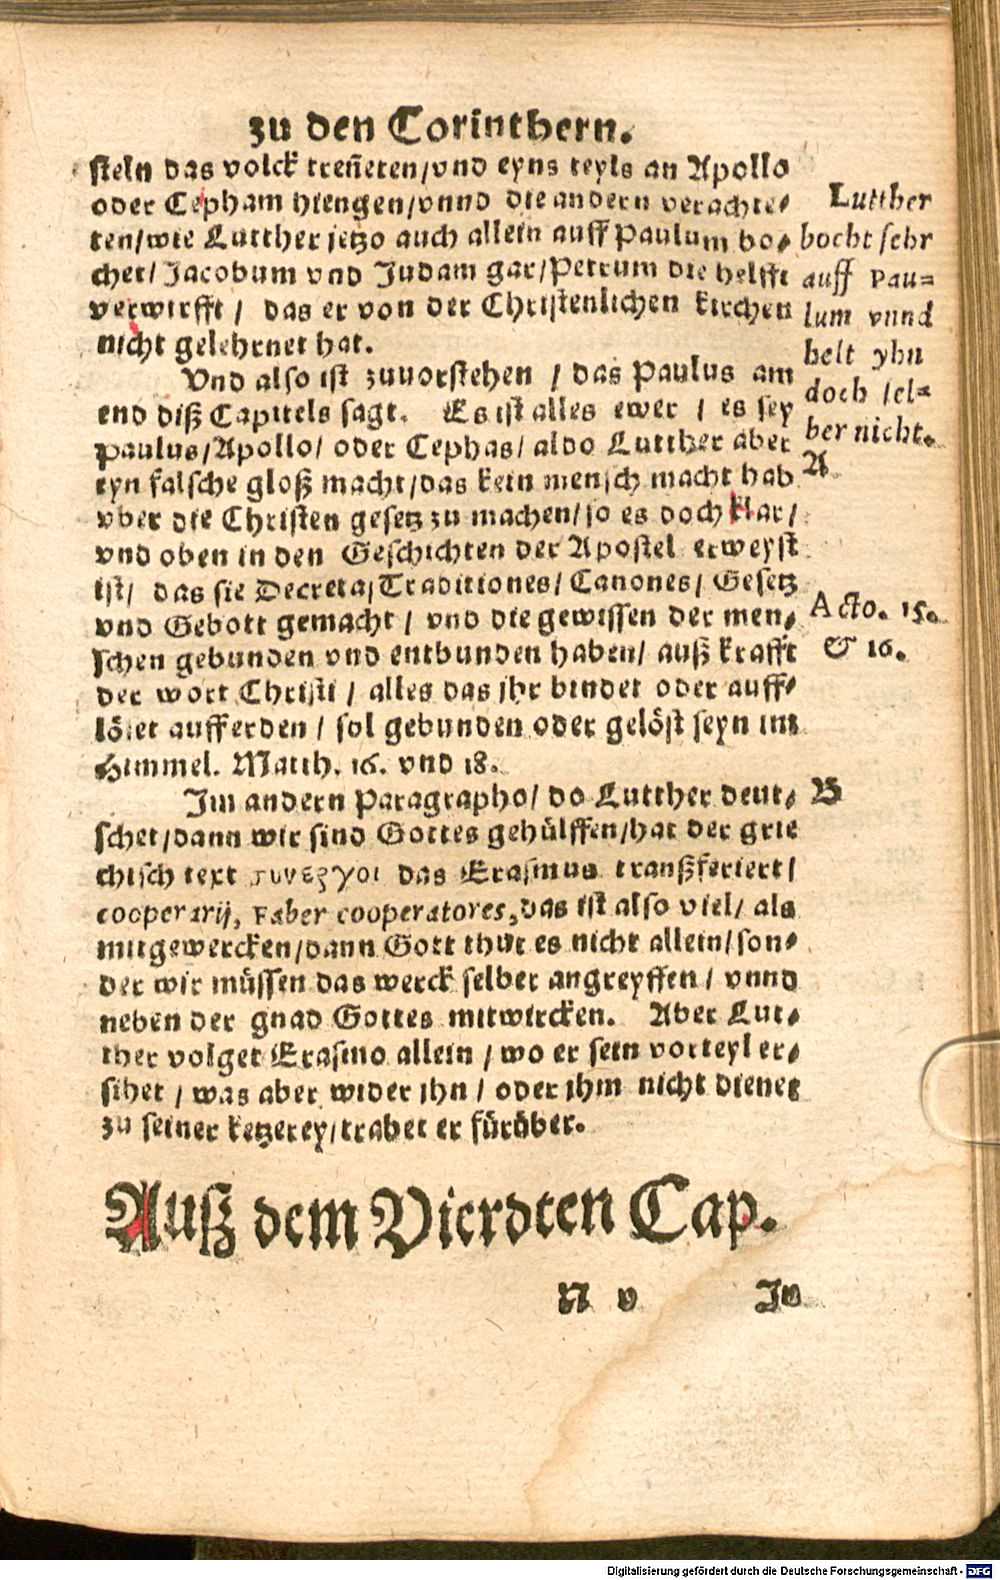 zu den Corinthern.
steln das volck treñeten/vnd eyns teyls an Apollo
oder Cepham hiengen/vnnd die andern verachte⸗
ten/wie Lutther jetzo auch allein auff Paulum bo⸗
chet/ Jacobum vnd Judam gar/Petrum die helfft
verwirfft / das er von der Christenlichen kirchen
nicht gelehrnet hat.
Lutther
bocht sehr
auff Pau=
lum vnnd
helt yhn
doch sel=
ber nicht.
Vnd also ist zuuorstehen / das Paulus am
end diß Capitels sagt. Es ist alles ewer / es sey
Paulus/Apollo/ oder Cephas/ aldo Lutther aber
A
eyn falsche gloß macht/das kein mensch macht hab
vber die Christen gesetz zu machen/so es doch klar/
vnd oben in den Geschichten der Apostel erweyst
ist/ das sie Decreta/Traditiones/ Canones/ Gesetz
vnd Gebott gemacht / vnd die gewissen der men⸗
schen gebunden vnd entbunden haben/ auß krafft
der wort Christi / alles das jhr bindet oder auff⸗
löset aufferden / sol gebunden oder gelöst seyn im
Himmel. Matth. 16. vnd 18.
Acto. 15.
& 16.
Im andern Paragrapho/ do Lutther deut⸗
B
schet/dann wir sind Gottes gehülffen/hat der grie
chisch text συνεργοι das Erasmus tranßferiert/
cooperarij, Faber cooperatores, das ist also viel/ als
mitgewercken/dann Gott thut es nicht allein/son⸗
der wir müssen das werck selber angreyffen / vnnd
neben der gnad Gottes mitwircken. Aber Lut⸗
ther volget Erasmo allein / wo er sein vorteyl er⸗
sihet / was aber wider jhn / oder jhm nicht dienet
zu seiner ketzerey/trabet er fürüber.
Auß dem Vierdten Cap.
N v Jo
Digitalisierung gefördert durch die Deutsche Forschungsgemeinschaft - DFG